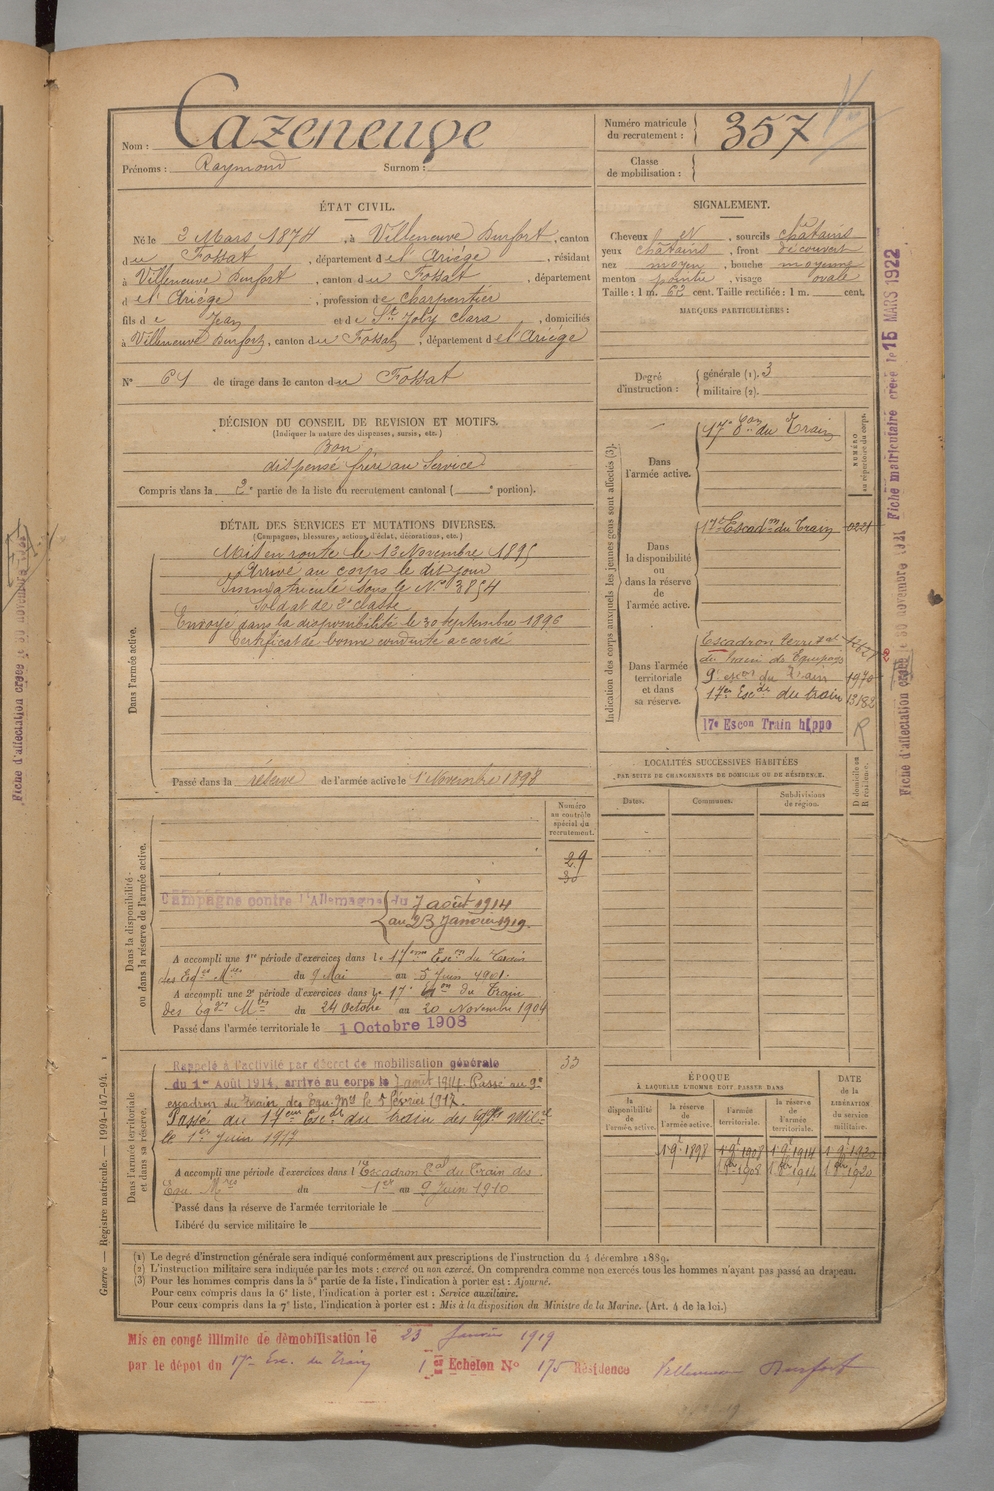 Nom : Cazeneuve
Prénoms : Raymond Surnom :
Numéro matricule du recrutement : 357
Classe de mobilisation :
ÉTAT CIVIL.
Né le 2 Mars 1874, à Villeneuve Durfort, canton
du Fossat, département de l'Ariège, résidant
à Villeneuve Durfort, canton du Fossat, département
d el'Ariége, profession de charpentier
fils de Jean et de St Joly clara, domiciliés
à Villeneuve Durfort, canton du Fossat, département de l'Ariége
N° 61 de tirage dans le canton du Fossat
SIGNALEMENT.
Cheveux et, sourcils châtains
yeux châtains, front découvert
nez moyen, bouche moyenne
menton pointu, visage ovale
Taille : 1 m. 62 cent. Taille rectifiée : 1 m. cent.
MARQUES PARTICULIÈRES :
Degré d'instruction : générale (1). 3
militaire (2).
DÉCISION DU CONSEIL DE REVISION ET MOTIFS.
(Indiquer la nature des dispenses, sursis, etc.)
Bon
dispensé frère au Service
Compris dans la 2e partie de la liste du recrutement cantonal ( e portion).
DÉTAIL DES SERVICES ET MUTATIONS DIVERSES.
(Campagnes, blessures, actions d'éclat, décorations, etc.)
Dans l'armée active.
Mis en route le 13 Novembre 1895
Arrivé au corps le dit jour
Immatriculé sous le N° 3854
Soldat de 2e classe
Envoyé dans la disponibilité le 30 septembre 1896
Certificat de bonne conduite accordé
Passé dans la réserve de l'armée active le 1 Novembre 1898
Indication des corps auxquels les jeunes gens sont affectés (3).
Dans l'armée active.
17e Eon du Train
NUMÉRO au répertoire du corps.
Dans la disponibilité ou dans la réserve de l'armée active.
17e Escadon du Train 0221
Dans l'armée territoriale et dans sa réserve.
Escadron territal
du train de Equipages
9e escon du Train 1970
17e Esc de du train 13182
17e Escon Train hippo R
LOCALITÉS SUCCESSIVES HABITÉES
PAR SUITE DE CHANGEMENTS DE DOMICILE OU DE RÉSIDENCE.
Dates. Communes. Subdivisions de région. D domicile ou R résidence.
Numéro au contrôle spécial du recrutement.
29
30
Dans la disponibilité ou dans la réserve de l'armée active.
Campagne contre l'Allemagne du 7 août 1914
au 23 Janvier 1919.
A accompli une 1re période d'exercices dans le 17eme Escon du Train
des Eqges Mres du 9 Mai au 5 Juin 1901.
A accompli une 2e période d'exercices dans le 17e on du Train
des Eqges Mres du 24 Octobre au 20 Novembre 1904
Passé dans l'armée territoriale le 1 Octobre 1908
Dans l'armée territoriale et dans sa réserve.
33
Rappelé à l'activité par décret de mobilisation générale
du 1er Août 1914, arrivé au corps le 7 août 1914. Passé au 9e
escadron du train des Equ. Mres le 5 février 1917.
Passé au 17eme Esc de du train des Eqges Milres
le 1er Juin 1917
A accompli une période d'exercices dans l'Escadron Tal du Train des
Equ. Mres du 1er au 9 Juin 1910
Passé dans la réserve de l'armée territoriale le
Libéré du service militaire le
ÉPOQUE
À LAQUELLE L'HOMME DOIT PASSER DANS
la disponibilité de l'armée active.
la réserve de l'armée active. 1 9e 1898
l'armée territoriale. 1 9e 1908 1 8bre 1908
la réserve de l'armée territoriale. 1 9e 1914 1 8bre 1914
DATE de la LIBÉRATION du service militaire. 1 9e 1920 1 8bre 1920
(1) Le degré d'instruction générale sera indiqué conformément aux prescriptions de l'instruction du 4 décembre 1889.
(2) L'instruction militaire sera indiquée par les mots : exercé ou non exercé. On comprendra comme non exercés tous les hommes n'ayant pas passé au drapeau.
(3) Pour les hommes compris dans la 5e partie de la liste, l'indication à porter est : Ajourné.
Pour ceux compris dans la 6e liste, l'indication à porter est : Service auxiliaire.
Pour ceux compris dans la 7e liste, l'indication à porter est : Mis à la disposition du Ministre de la Marine. (Art. 4 de la loi.)
Guerre — Registre matricule. — 1994-147-94.
Mis en congé illimité de démobilisation le 23 Janvier 1919
par le dépot du 17e Esc. du Train 1er Echelon N° 175 Résidence Villeneuve Durfort
Fiche d'affectation créée le 30 novembre 1921 Fiche matriculaire créée le 15 MARS 1922